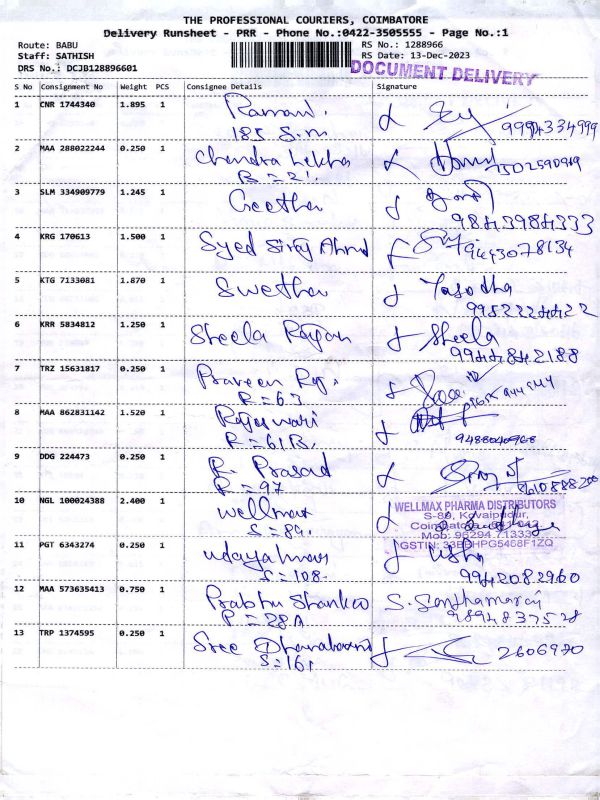 THE PROFESSIONAL COURIERS, COIMBATORE
Delivery Runsheet - PRR - Phone No.:0422-3505555 - Page No.:1
Route: BABU
RS No.: 1288966
Staff: SATHISH
RS Date: 13-Dec-2023
DRS No.: DCJB128896601
DOCUMENT DELIVERY
S No Consignment No Weight PCS Consignee Details Signature
1 CNR 1744340 1.895 1 Ramani.
185 S.m 9994334999
2 MAA 288022244 0.250 1 Chandra Lekha
R = 21.
3 SLM 334909779 1.245 1 Geetha
9843984333
4 KRG 170613 1.500 1 Syed Siraj Ahmd 9443078134
5 KTG 7133081 1.870 1 Swetha Yasodha
9952224422
6 KRR 5834812 1.250 1 Sheela Rajan Sheela
9944842188
7 TRZ 15631817 0.250 1 Praveen Raj.
R = 67
8 MAA 862831142 1.520 1 Rajeswari
R = 61B.
9 DDG 224473 0.250 1 R. Prasad
R = 97
10 NGL 100024388 2.400 1 wellmax
S = 89.
WELLMAX PHARMA DISTRIBUTORS
S-89, Kovaipudur,
11 PGT 6343274 0.250 1 udayakumar Usha
S = 108. 9942082960
12 MAA 573635413 0.750 1 Prabhu Shankar S. Santhamarai
P = 28A 9894837528
13 TRP 1374595 0.250 1 Sree
S = 161 2606970